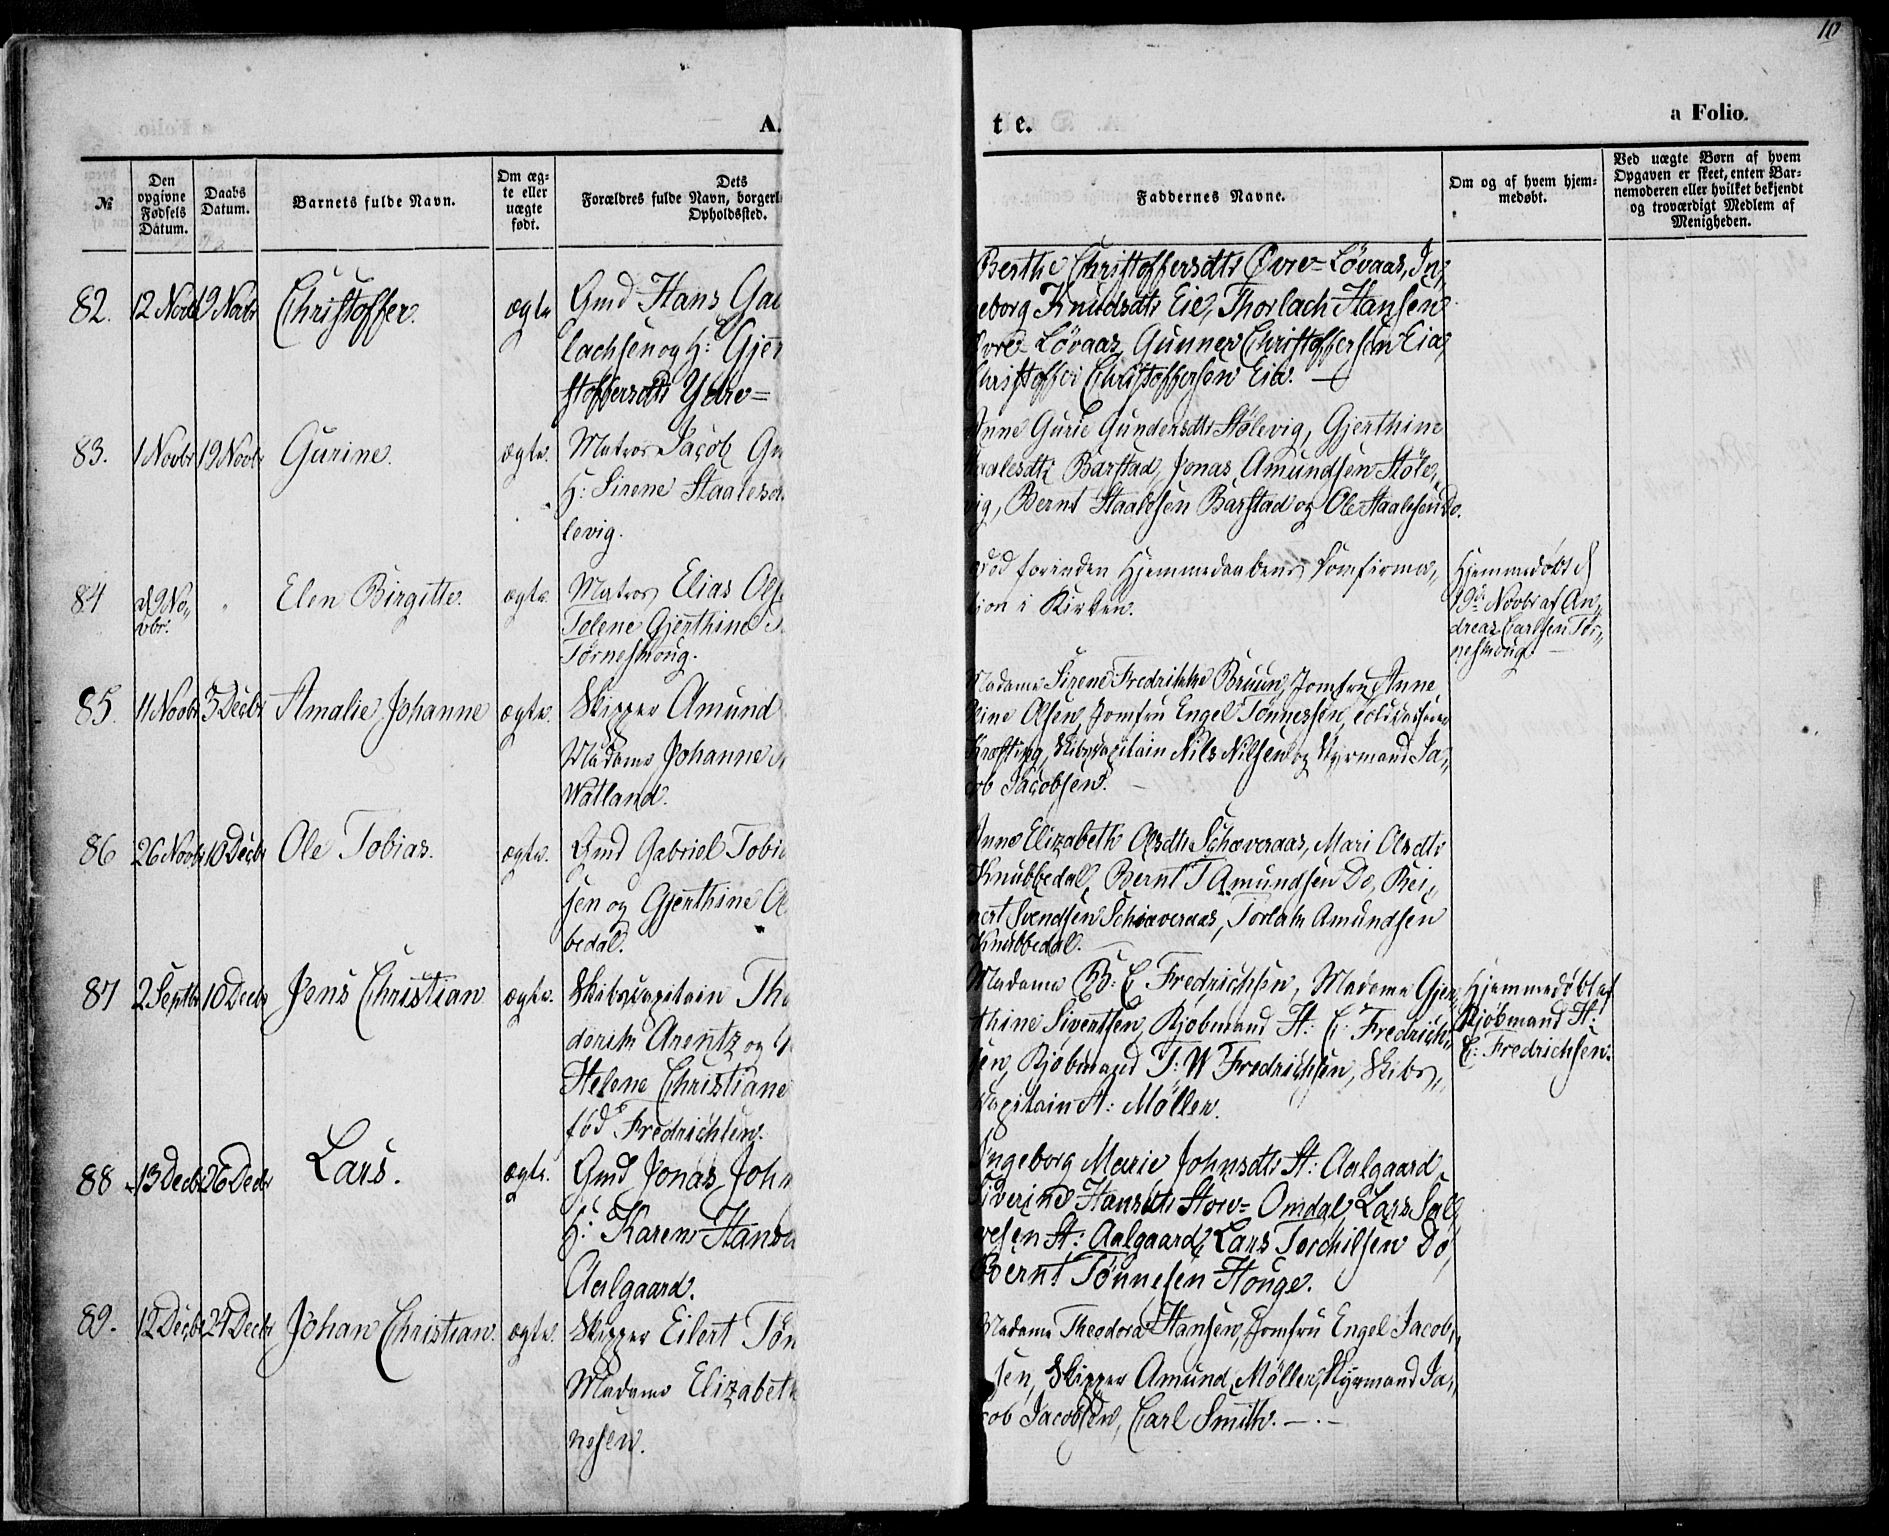 10
A.
t e.
a Folio.
№
Den opgivne Fødsels Datum.
Daabs Datum.
Barnets fulde Navn.
Om ægte eller uægte født.
Dets
Forældres fulde Navn, borgerl
Opholdssted.
Faddernes Navne.
Om og af hvem hjemmedøbt.
Ved uægte Børn af hvem
Opgaven er skeet, enten Bar-
nemoderen eller hvilket bekjendt
og troværdigt Medlem af
Menigheden.
82. 12 Novbr 19 Novbr Christoffer. ægte
Gmd Hans Ga
lachsen og H: Gjer
stoffersdtr Ydre=
Berthe Christoffersdtr Øvre=Løvaas, In,
geborg Knudsdtr Eie, Thorlach Hansen
Øvre Løvaas, Gunner Christoffersen Eie,
Christoffer Christoffersen Eie.
83. 1 Novbr 19 Novbr Gurine. ægte.
Matros Jacob Gu
H: Sirene Staalesd
levig.
Anne Gurie Gundersdtr Stølevig, Gjerthine
Staalesdtr Barstad, Jonas Amundsen Støle,,
vig, Bernt Staalesen Barstad og Ole Staalesen Do.
84 d 9 No,,
vbr. " Elen Birgitte. ægte
Matros Elias Ols
Tolene Gjerthine
Tørnesmoug.
død forinden Hjemmedaabens Comfirma,,
tion i Kirken.
Hjemmedøbt d
19de Novbr af An,,
dreas Carlsen Tør,,
nesmoug.
85. 11 Novbr 3 Decbr Amalie Johanne ægte.
Skipper Amund
Madame Johanne
Watland.
Madame Sirene Fredrikke Bruun, Jomfru Anne
Oline Olsen, Jomfru Engel Tønnessen,
Krøfting, Skibscapitain Nils Nilsen og Styrmand Ja,,
cob Jacobsen.
86 26 Novbr 10 Decbr Ole Tobias. ægte.
Gmd Gabriel Tobia
sen og Gjerthine
bedal.
Anne Elizabeth Olsdtr Schæveraas, Mari Olsdtr
Knubbedal, Bernt T Amundsen Do, Rei,,
nert Svendsen Schæveraas, Torlak Amundsen
Knubbedal.
87 2 Septbr 10 Decbr Jens Christian ægte.
Skibscapitain Th
dorik Arentz og
Helene Christiane
fød Fredrichsen.
Madame B: C Fredrichsen, Madame Gjer,,
thine Sivertsen, Kjøbmand H: C: Fredrich,,
sen, Kjøbmand T: W Fredrichsen, Skibs,,
Capitain A: Møller.
Hjemmedøbt af
Kjøbmand H:
C: Fredrichsen.
88 13 Decbr 26 Decbr Lars. ægte.
Gmd Jonas John
H: Karen Hansd
Aalgaard.
Ingeborg Marie Johnsdtr St: Aalgaard,
Siverine Hansdtr Store=Omdal, Lars Sal,
vesen St: Aalgaard, Lars Torchilsen Do,
Bernt Tønnesen Houge.
89. 12 Decbr 27 Decbr Johan Christian. ægte.
Skipper Eilert Tøn
Madame Elizabeth
nesen.
Madame Theodora Hansen, Jomfru Engel Jacob,,
sen, Skipper Amund Møller, Styrmand Ja,,
cob Jacobsen, Carl Smith.